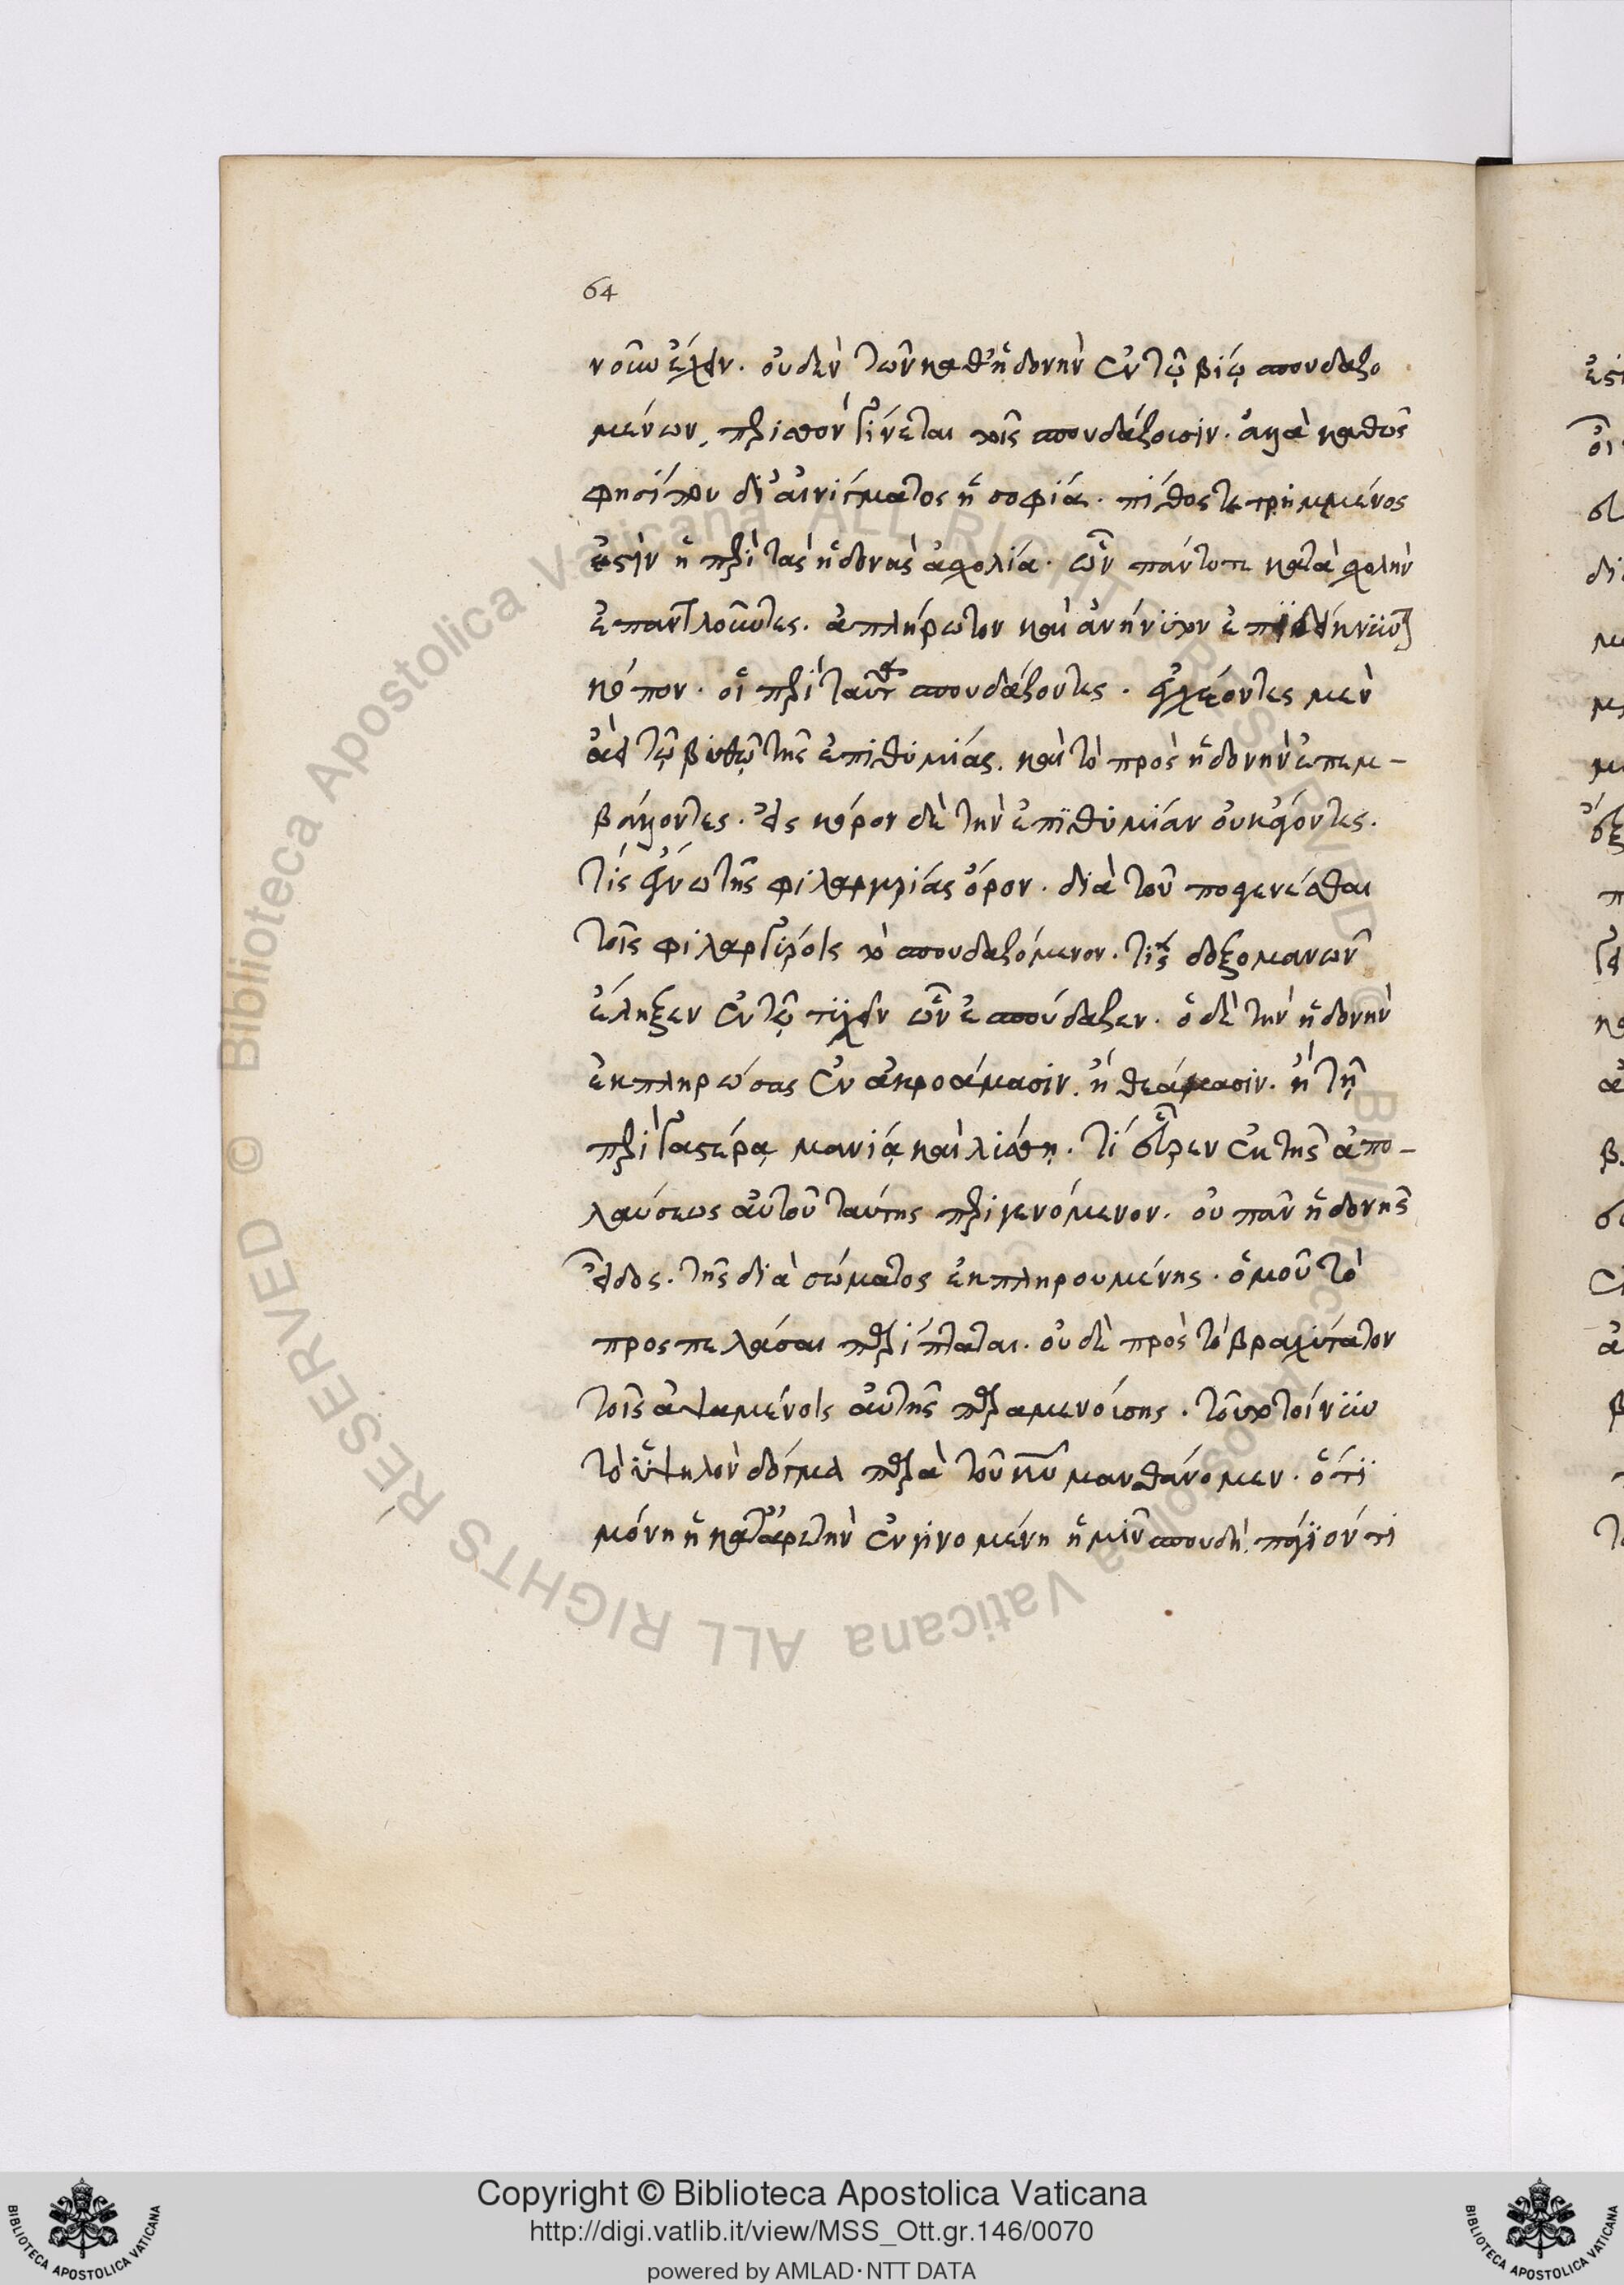 64
νοῦν ἔχειν. οὐδὲν τῶν καθ' ἡδονὴν ἐν τῷ βίῳ σπουδαζο
μένων, γίνεται τοῖς σπουδάζουσιν. ἀλλὰ καθώς
φησί που δι' αἰνίγματος ἡ σοφία. πίθος τετρημμένος
ἐστὶν ἡ περὶ τὰς ἡδονὰς ἀσχολία. ὃν πάντοτε κατὰ σχολὴν
ἐπαντλοῦντες. ἀπλήρωτον καὶ ἀνήνυτον ἐπιδείκνυνται
κόπον. οἱ περὶ ταῦτα σπουδάζοντες. ἐγχέοντες μὲν
ἀεὶ τῷ βυθῷ τῆς ἐπιθυμίας. καὶ τὸ πρὸς ἡδονὴν ἐπεμ-
βάλλοντες. εἰς κόρον δὲ τὴν ἐπιθυμίαν οὐκ ἄγοντες.
τίς ἔγνω τῆς φιλαργυρίας ὅρον. διὰ τοῦ προσγενέσθαι
τοῖς φιλαργύροις τὸ σπουδαζόμενον. τίς δοξομανῶν
ἔληξεν ἐν τῷ τυχεῖν ὧν ἐσπούδαζεν. ὁ δὲ τὴν ἡδονὴν
ἐκπληρώσας ἐν ἀκροάμασιν. ἢ θεάμασιν. ἢ τῇ
περὶ γαστέρα μανίᾳ καὶ λύσσῃ. τί εὗρεν ἐκ τῆς ἀπο-
λαύσεως αὐτοῦ ταύτης περιγενόμενον. οὐ πᾶν ἡδονῆς
εἶδος. τῆς διὰ σώματος ἐκπληρουμένης. ὁμοῦ τὸ
προσπελάσαι παρίπταται. οὐδὲ πρὸς τὸ βραχύτατον
τοῖς ἁψαμένοις αὐτῆς παραμενούσης. τοῦτο τοίνυν
τὸ ὑψηλὸν δόγμα παρὰ τοῦ κυ μανθάνομεν. ὅτι
μόνη ἡ κατ' ἀρετὴν ἐγγινομένη ἡμῖν σπουδὴ. πάγιόν τι
Copyright © Biblioteca Apostolica Vaticana
http://digi.vatlib.it/view/MSS_Ott.gr.146/0070
powered by AMLAD·NTT DATA